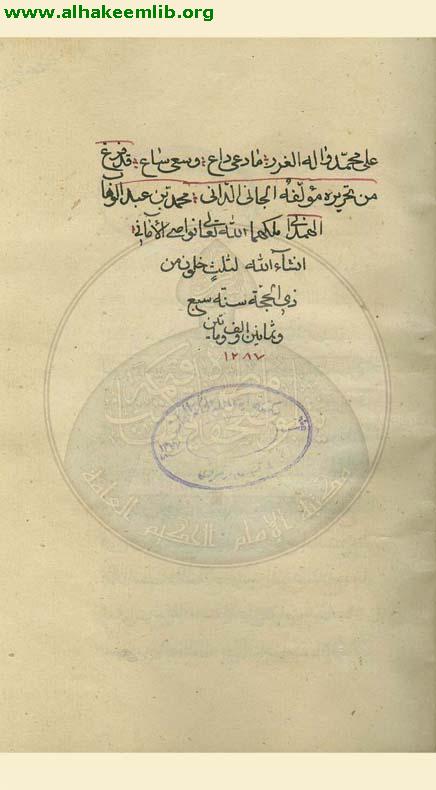 www.alhakeemlib.org
على محمد واله الغرر مادعى داع وسعى ساع قد فرغ
من تحريره مؤلفه الجاني الداني محمد بن عبد الوهاب
الهمداني ملكهما الله تعالى نواصي الأماني
انشآء الله لثلث خلون من
ذي الحجة سنة سبع
وثمانين والف ومأتين
١٢٨٧
مكتبة الإمام الحكيم العامة